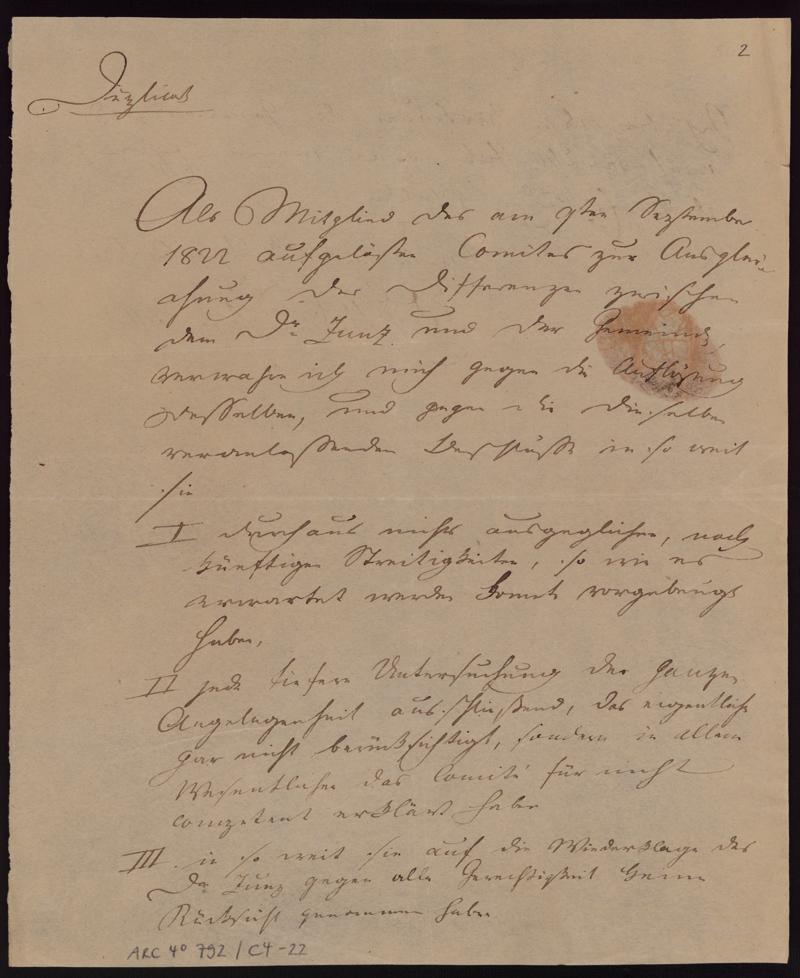 2
Duplicat
Als Mitglied des am 9ten September
1822 aufgelösten Comités zur Ausglei-
chung der Differenzen zwischen
dem Dr. Zunz und der Gemeinde,
verwahre ich mich gegen die Auflösung
desselben, und gegen die dieselbe
veranlassenden Beschlüsse in so weit
sie
I durchaus nichts ausgeglichen, noch
künftigen Streitigkeiten, so wie es
erwartet werden konnte vorgebeugt
haben,
II jede tiefere Untersuchung der ganzen
Angelegenheit ausschließend, das eigentliche
gar nicht berücksichtigt, sondern in allem
Wesentlichen das Comité für nicht
competent erklärt haben
III in so weit sie auf die Wiederklage des
Dr Zunz gegen alle Gerechtigkeit keine
Rücksicht genommen haben
ARC 4° 792 / C4-22